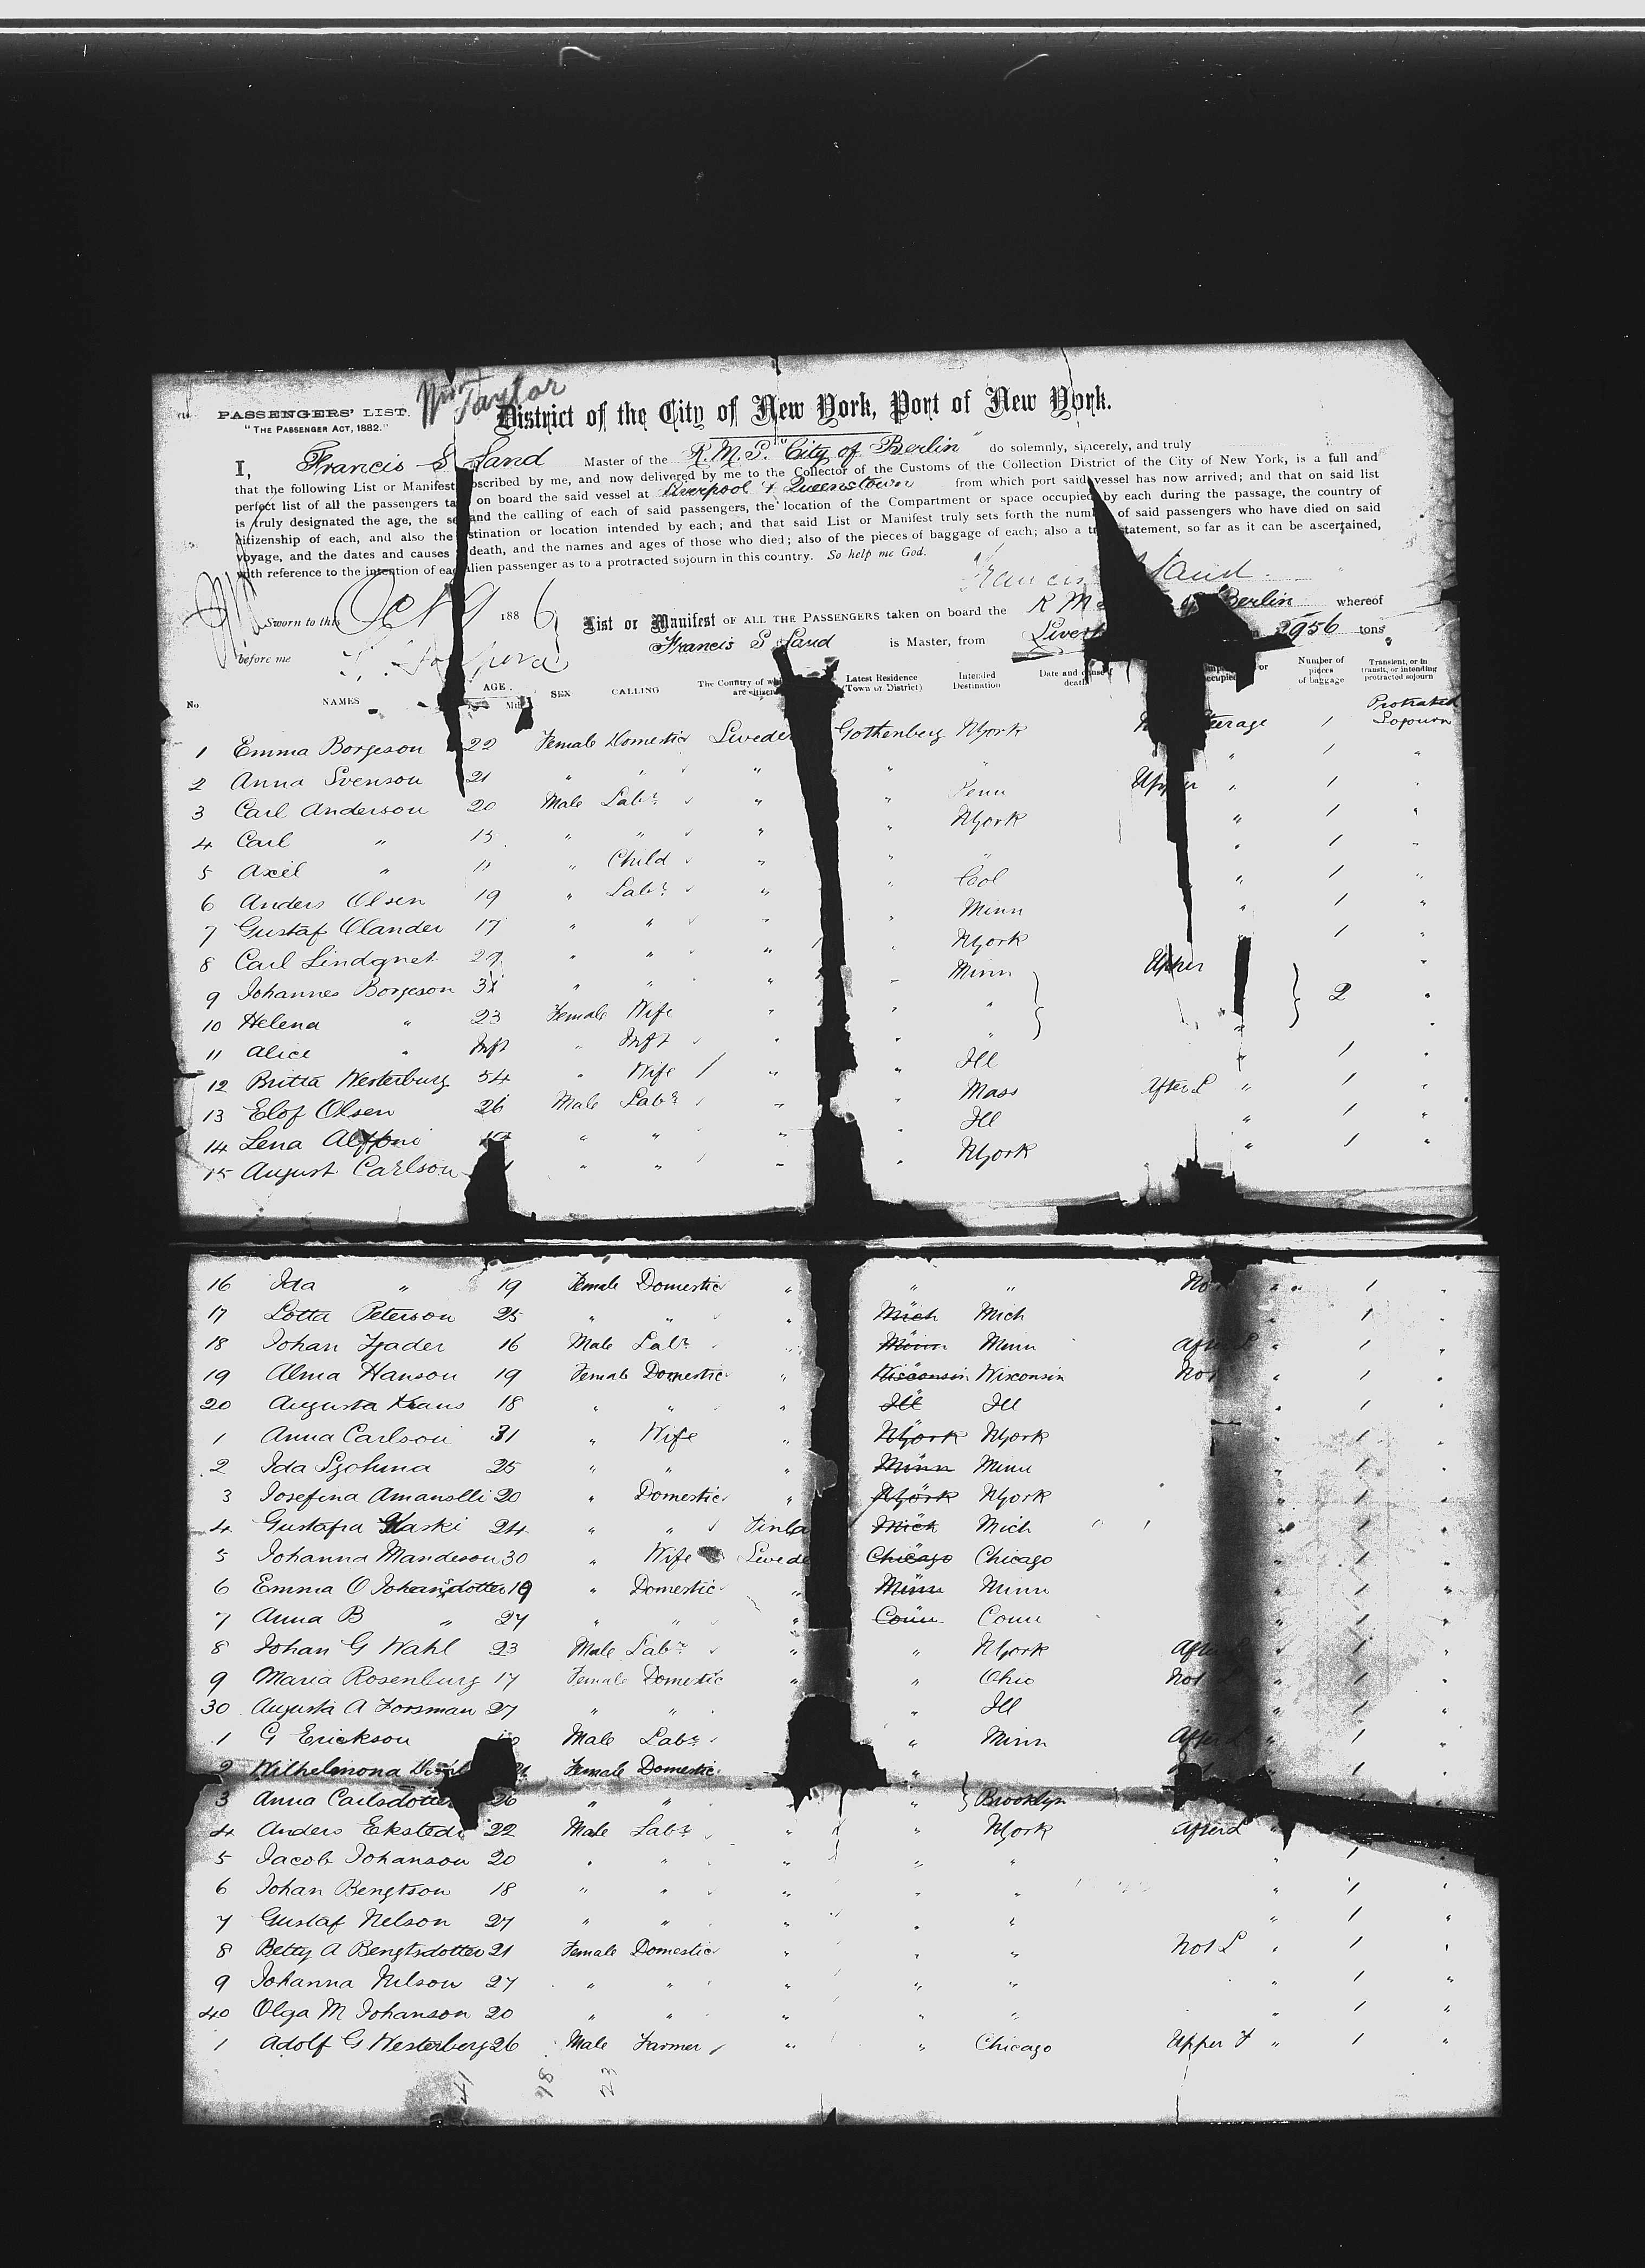 Taylor
PASSENGERS' LIST.
"THE PASSENGER ACT, 1882."
District of the City of New York, Port of New York.
I, Francis S Land Master of the R.M.S. "City of Berlin" do solemnly, sincerely, and truly
that the following List or Manifest subscribed by me, and now delivered by me to the Collector of the Customs of the Collection District of the City of New York, is a full and
perfect list of all the passengers on board the said vessel at Liverpool & Queenstown from which port said vessel has now arrived; and that on said list
is truly designated the age, the and the calling of each of said passengers, the location of the Compartment or space occupied by each during the passage, the country of
citizenship of each, and also the destination or location intended by each; and that said List or Manifest truly sets forth the number of said passengers who have died on said
voyage, and the dates and causes death, and the names and ages of those who died; also of the pieces of baggage of each; also a statement, so far as it can be ascertained,
with reference to the intention of each alien passenger as to a protracted sojourn in this country. So help me God.
Francis Land.
Sworn to this Oct 9 1886
before me
List or Manifest OF ALL THE PASSENGERS taken on board the R M Berlin whereof
Francis S Land is Master, from 2956 tons
No NAMES AGE SEX CALLING The Country of are citizens Latest Residence (Town or District) Intended Destination Date and cause death Number of pieces of baggage Transient, or in transit, or intending protracted sojourn
1 Emma Borgeson 22 Female Domestic Swede Gothenberg NYork 1 Protracted Sojourn
2 Anna Svenson 21 " " " " " " 1 "
3 Carl Anderson 20 Male Labr " " Penn Upper " 1 "
4 Carl " 15 " " " " NYork " 1 "
5 Axel " 11 " Child " " " " 1 "
6 Anders Olsen 19 " Labr " " Col " 1 "
7 Gustaf Olander 17 " " " " Minn " 1 "
8 Carl " " " " NYork 1 "
9 Johannes Borgeson " " " " Minn Upper "
10 Helena " 23 Female Wife " " " 2 "
11 Alice " Inft " Inft " " " "
12 Britta Westerburg 54 " Wife " " Ill " 1 "
13 Elof Olsen 26 Male Labr " " Mass After L " 1 "
14 Lena " " " " Ill " 1 "
15 August Carlson " " " " NYork " 1 "
16 Ida " 19 Female Domestic " " " " 1 "
17 Lotta Peterson 25 " " " Mich Mich " 1 "
18 Johan 16 Male Labr " Minn Minn " 1 "
19 Alma Hanson 19 Female Domestic " Wisconsin Wisconsin Not " 1 "
20 Augusta 18 " " " Ill Ill " 1 "
1 Anna Carlson 31 " Wife " NYork NYork " 1 "
2 Ida 25 " " " Minn Minn " 1 "
3 Josefina 20 " Domestic " NYork NYork " 1 "
4 Gustafva 24 " " Finla Mich Mich " 1 "
5 Johanna Mandeson 30 " Wife Swede Chicago Chicago " 1 "
6 Emma O Johansdotter 19 " Domestic " Minn Minn " 1 "
7 Anna B " 27 " " " Conn Conn " 1 "
8 Johan G Wahl 23 Male Labr " " NYork After L " 1 "
9 Maria Rosenburg 17 Female Domestic " " Ohio Not L " 1 "
30 Augusta A Forsman 27 " " " Ill " 1 "
1 G Erickson Male Labr " Minn After L " 1 "
2 Wilhelmona Female Domestic " 1 "
3 Anna Carlsdotter 26 " " " " Brooklyn
4 Anders 22 Male Labr " " NYork After L "
5 Jacob Johanson 20 " " " " " " 1 "
6 Johan Bengtson 18 " " " " " " 1 "
7 Gustaf Nelson 27 " " " " " " 1 "
8 Betty A Bengtsdotter 21 Female Domestic " " " Not L " 1 "
9 Johanna Nilson 27 " " " " " " 1 "
40 Olga M Johanson 20 " " " " " " 1 "
1 Adolf G Westerberg 26 Male Farmer " " Chicago Upper F " 1 "
41 18 23